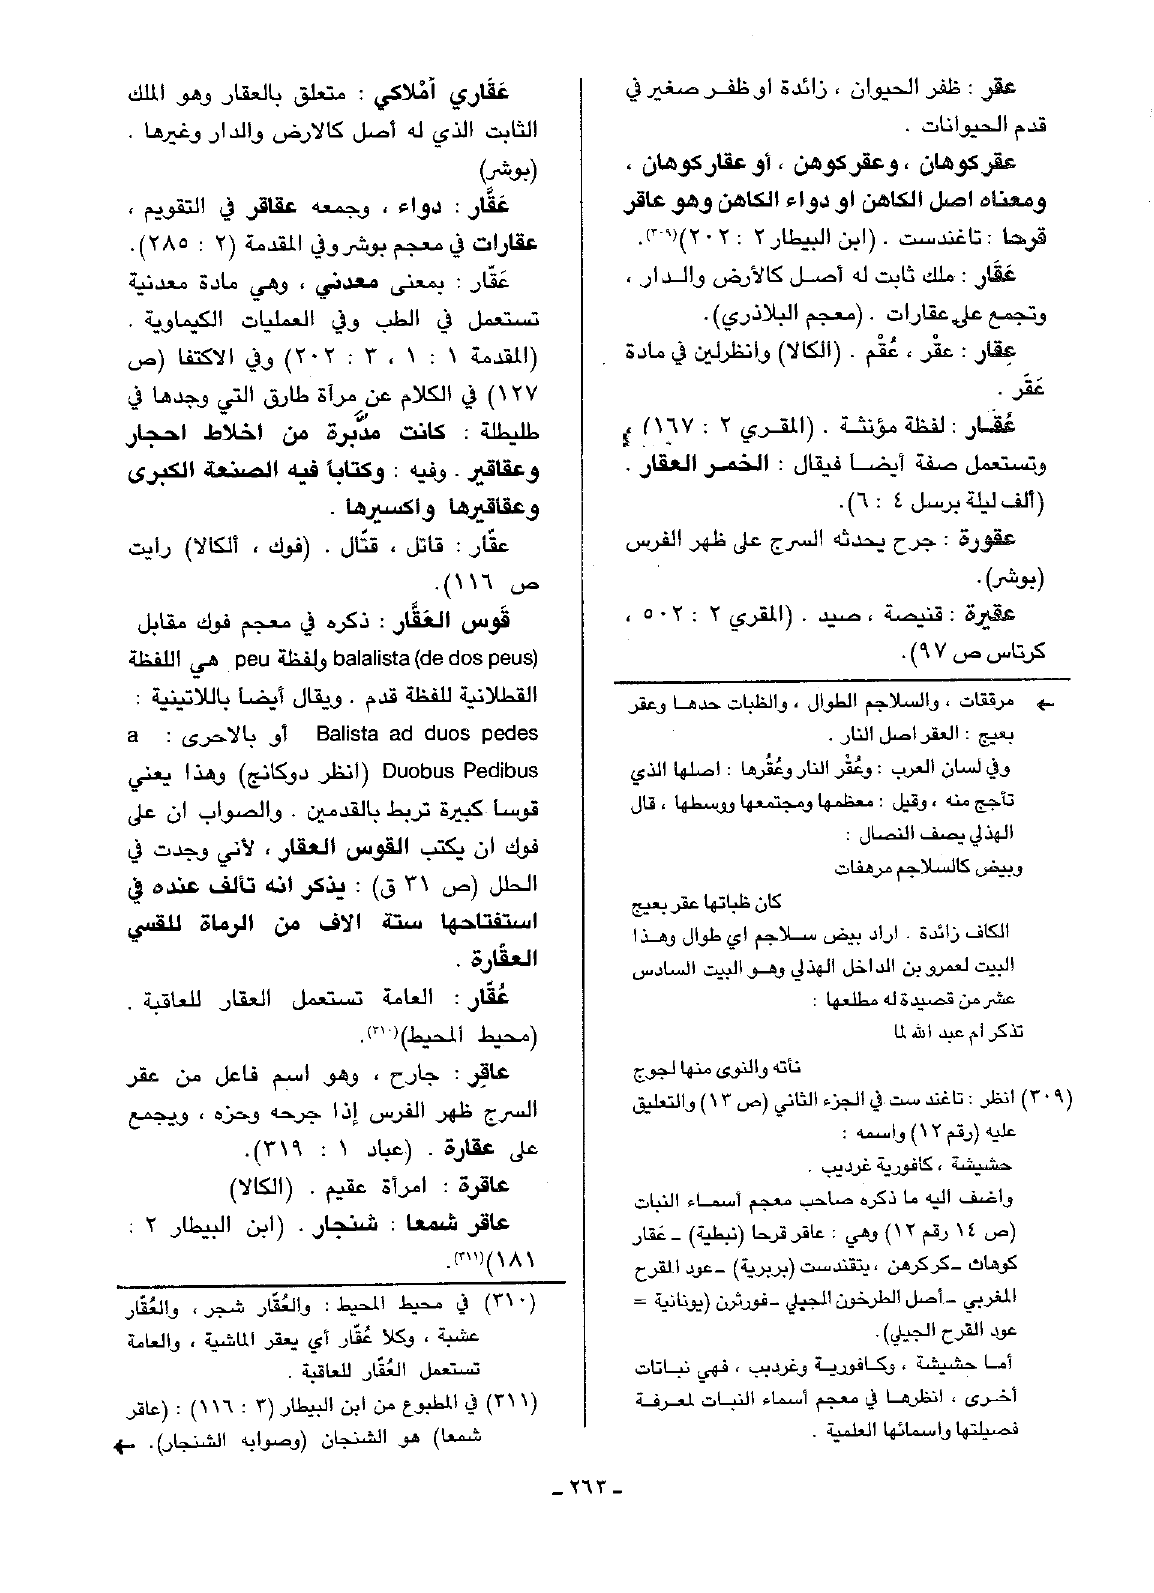 عقر : ظفر الحيوان ، زائدة او ظفر صغير في
قدم الحيوانات .
عقر كوهان ، وعقر كوهن ، أو عقار كوهان ،
ومعناه اصل الكاهن او دواء الكاهن وهو عاقر
قرحا : تاغندست . (ابن البيطار ٢ : ٢٠٢)(٣٠٩).
عَقَار : ملك ثابت له أصل كالأرض والدار ،
وتجمع على عقارات . (معجم البلاذري).
عِقار : عقْر ، عُقْم . (الكالا) وانظرلين في مادة
عَقَر .
عُقَار : لفظة مؤنثة . (المقري ٢ : ١٦٧) ؟
وتستعمل صفة أيضا فيقال : الخمر العقار .
(ألف ليلة برسل ٤ : ٦).
عقورة : جرح يحدثه السرج على ظهر الفرس
(بوشر).
عقيرة : قنيصة ، صيد . (المقري ٢ : ٥٠٢ ،
كرتاس ص ٩٧).
← مرققات ، والسلاجم الطوال ، والظبات حدها وعقر
بعيج : العقر اصل النار .
وفي لسان العرب : وعُقْر النار وعُقُرها : اصلها الذي
تأجج منه ، وقيل : معظمها ومجتمعها ووسطها ، قال
الهذلي يصف النصال :
وبيض كالسلاجم مرهفات
كان ظباتها عقر بعيج
الكاف زائدة . اراد بيض سلاجم اي طوال وهذا
البيت لعمرو بن الداخل الهذلي وهو البيت السادس
عشر من قصيدة له مطلعها :
تذكر ام عبد الله لما
نأته والنوى منها لجوج
(٣٠٩) انظر : تاغند ست في الجزء الثاني (ص ١٣) والتعليق
عليه (رقم ١٢) واسمه :
حشيشة ، كافورية غرديب .
واضف اليه ما ذكره صاحب معجم أسماء النبات
(ص ١٤ رقم ١٢) وهي : عاقر قرحا (نبطية) ـ عَقار
كوهان ـ كركرهن ، يتقندست (بربرية) ـ عود القرح
المغربي ـ أصل الطرخون الجبلي ـ فورثرن (يونانية =
عود القرح الجبلي).
أما حشيشة ، وكافورية وغرديب ، فهي نباتات
أخرى ، انظرها في معجم أسماء النبات لمعرفة
فصيلتها واسمائها العلمية .
عَقَاري أمْلاكي : متعلق بالعقار وهو الملك
الثابت الذي له أصل كالارض والدار وغيرها .
(بوشر)
عَقَّار : دواء ، وجمعه عقاقر في التقويم ،
عقارات في معجم بوشر وفي المقدمة (٢ : ٢٨٥).
عَقّار : بمعنى معدني ، وهي مادة معدنية
تستعمل في الطب وفي العمليات الكيماوية .
(المقدمة ١ : ١ ، ٣ : ٢٠٢) وفي الاكتفا (ص
١٢٧) في الكلام عن مرآة طارق التي وجدها في
طليطلة : كانت مدبَّرة من اخلاط احجار
وعقاقير . وفيه : وكتاباً فيه الصنعة الكبرى
وعقاقيرها واكسيرها .
عقّار : قاتل ، قتّال . (فوك ، ألكالا) رايت
ص ١١٦).
قَوس العَقَّار : ذكره في معجم فوك مقابل
balalista (de dos peus) ولفظة peu هي اللفظة
القطلانية للفظة قدم . ويقال أيضا باللاتينية :
Balista ad duos pedes أو بالاحرى : a
Duobus Pedibus (انظر دوكانج) وهذا يعني
قوسا كبيرة تربط بالقدمين . والصواب ان على
فوك ان يكتب القوس العقار ، لأني وجدت في
الحلل (ص ٣١ ق) : يذكر انه تألف عنده في
استفتاحها ستة الاف من الرماة للقسي
العقّارة .
عُقّار : العامة تستعمل العقار للعاقبة .
(محيط المحيط)(٣١٠).
عاقِر : جارح ، وهو اسم فاعل من عقر
السرج ظهر الفرس إذا جرحه وحزه ، ويجمع
على عقارة . (عباد ١ : ٣١٩).
عاقرة : امرأة عقيم . (الكالا)
عاقر شمعا : شنجار . (ابن البيطار ٢ :
١٨١)(٣١١).
(٣١٠) في محيط المحيط : والعُقّار شجر ، والعُقّار
عشبة ، وكلا عُقّار أي يعقر الماشية ، والعامة
تستعمل العُقّار للعاقبة .
(٣١١) في المطبوع من ابن البيطار (٣ : ١١٦) : (عاقر
شمعا) هو الشنجان (وصوابه الشنجار). ←
ـ ٢٦٣ ـ